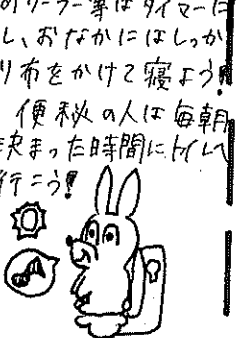 のクーラー等はタイマーに
し、おなかにはしっか
り布をかけて寝よう!!
便秘の人は毎朝
決まった時間にトイレへ
行こう!